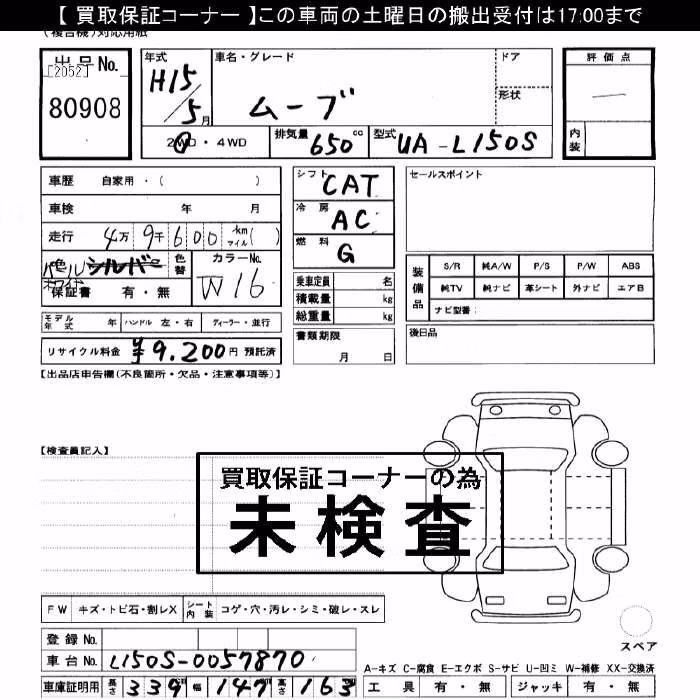 【 買取保証コーナー 】この車両の土曜日の搬出受付は17:00まで
(複合機)対応用紙
出品No.
[2052]
80908
年式
H15/5月
車名・グレード
ムーブ
ドア
形状
評価点
—
内装
2WD・4WD
排気量 650cc
型式 UA-L150S
車歴 自家用・( )
車検 年 月
走行 4万9千600km マイル( )
色 シルバー
パールホワイト
色替
カラーNo.
W16
保証書 有・無
モデル年式 年 ハンドル 左・右 ディーラー・並行
リサイクル料金 ¥9,200円 預託済
シフト CAT
冷房 AC
燃料 G
乗車定員 名
積載量 kg
総重量 kg
書類期限
月 日
セールスポイント
装備品
S/R 純A/W P/S P/W ABS
純TV 純ナビ 革シート 外ナビ エアB
ナビ型番:
後日品
【出品店申告欄(不良箇所・欠品・注意事項等)】
【検査員記入】
買取保証コーナーの為
未検査
FW キズ・トビ石・割レX シート内装 コゲ・穴・汚レ・シミ・破レ・スレ
登録No.
車台No. L150S-0057870
車庫証明用 長さ 339 幅 147 高さ 163
スペア
A-キズ C-腐食 E-エクボ S-サビ U-凹ミ W-補修 XX-交換済
工具 有・無 ジャッキ 有・無